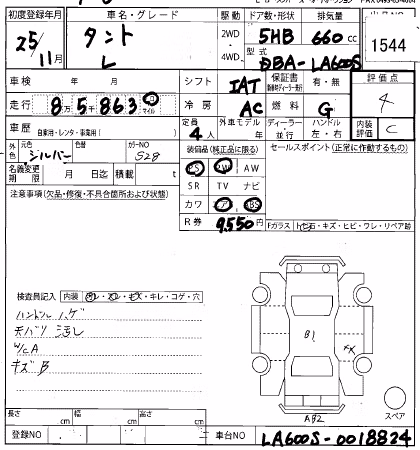 初度登録年月 車名・グレード 駆動 ドア数・形状 排気量
25/11月 タント L 2WD 4WD 5HB 660cc 1544
型式 DBA-LA600S
車検 年 月 シフト IAT 保証書 有・無 評価点 4
走行 8万5千863 km マイル 冷房 AC 燃料 G
車歴 自家用・レンタ・事業用( ) 定員 4人 外車モデル 年 ディーラー 並行 ハンドル 左・右 内装評価 C
外色 元色 シルバー 色替 カラーNO S28 装備品(純正品に限る) セールスポイント(正常に作動するもの)
名義変更期限 月 日迄 積載 t PS PW AW
注意事項(欠品・修復・不具合箇所および状態) SR TV ナビ
カワ エア ABS
R券 9,550円 Fガラス 飛石・キズ・ヒビ・ワレ・リペア跡
検査員記入 内装 ヨゴレ・スレ・キズ・キレ・コゲ・穴
ハンドルハゲ
天バリ汚レ
W/CA
キズB
B1
AB2
スペア
長さ cm 幅 cm 高さ cm
登録NO 車台NO LA600S-0018824